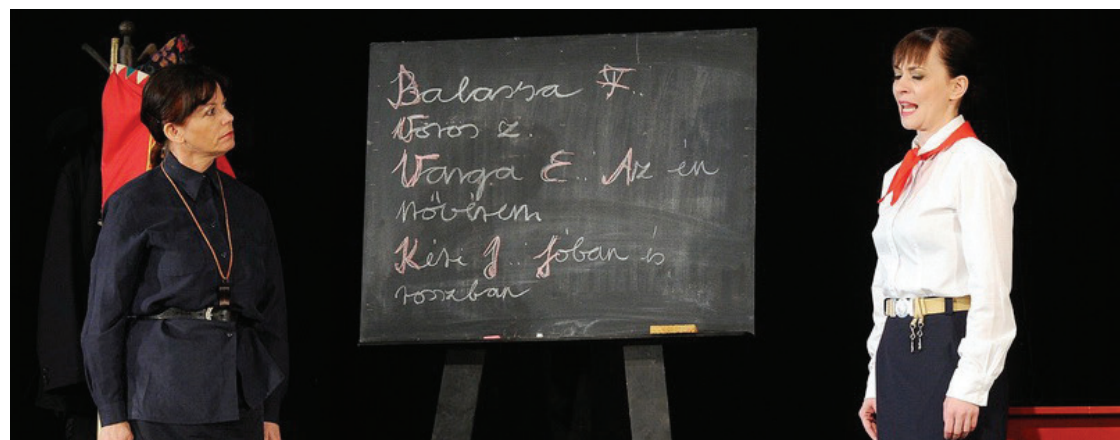 Balassa F..
Vörös Z.
Varga E.. Az én
nővérem
Kési J.. Jóban is
rosszban